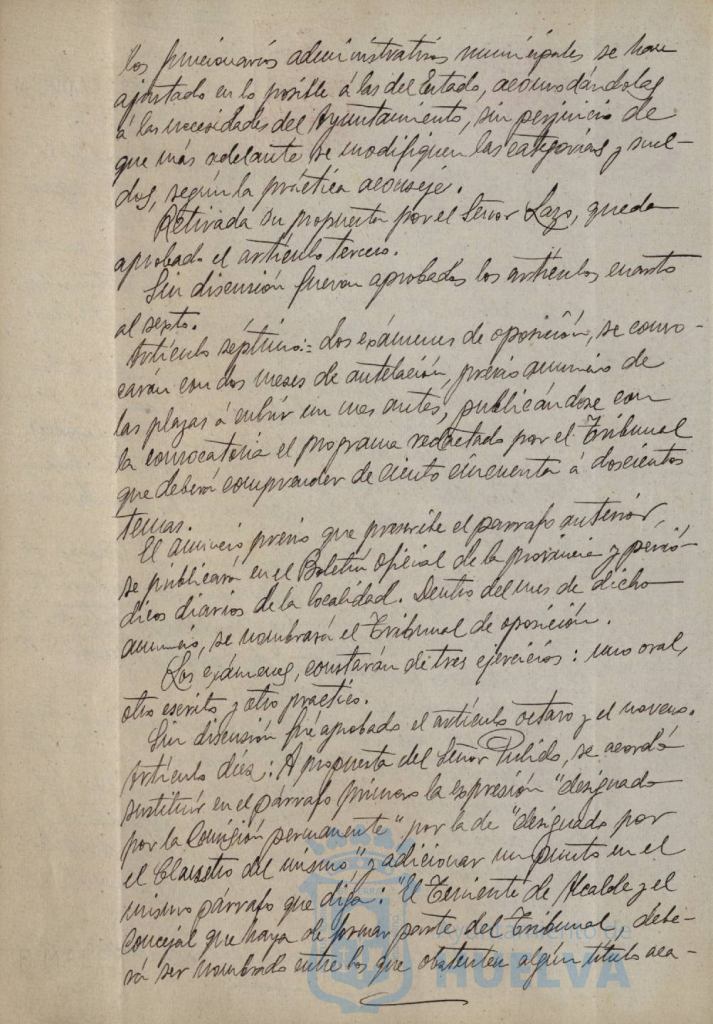 los funcionarios administrativos municipales se han
ajustado en lo posible á las del Estado, acomodándolas
á las necesidades del Ayuntamiento, sin perjuicio de
que más adelante se modifiquen las categorías y suel-
dos, según la práctica aconseje.
Retirada su propuesta por el Señor Lazo, queda
aprobado el artículo tercero.
Sin discusión fueron aprobados los artículos cuarto
al sexto.
Artículo séptimo:= Los exámenes de oposición, se convo-
carán con dos meses de antelación, previo anuncio de
las plazas á cubrir un mes antes, publicándose con
la convocatoria el programa redactado por el Tribunal
que deberá comprender de ciento cincuenta á doscientos
temas.
El anuncio previo que prescribe el párrafo anterior,
se publicará en el Boletín oficial de la provincia y perió-
dicos diarios de la localidad. Dentro del mes de dicho
anuncio, se nombrará el Tribunal de oposición.
Los exámenes, constarán de tres ejercicios: uno oral,
otro escrito y otro practico.
Sin discusión fué aprobado el artículo octavo y el noveno.
Artículo diez: A propuesta del Señor Pulido, se acordó
sustituir en el párrafo primero la expresión "designado
por la Comisión permanente", por la de "designado por
el Claustro del mismo" y adicionar un punto en el
mismo párrafo que diga: "El Teniente de Alcalde y el
Concejal que haya de formar parte del Tribunal, debe-
rá ser nombrado entre los que obstenten algún título aca-
HUELVA